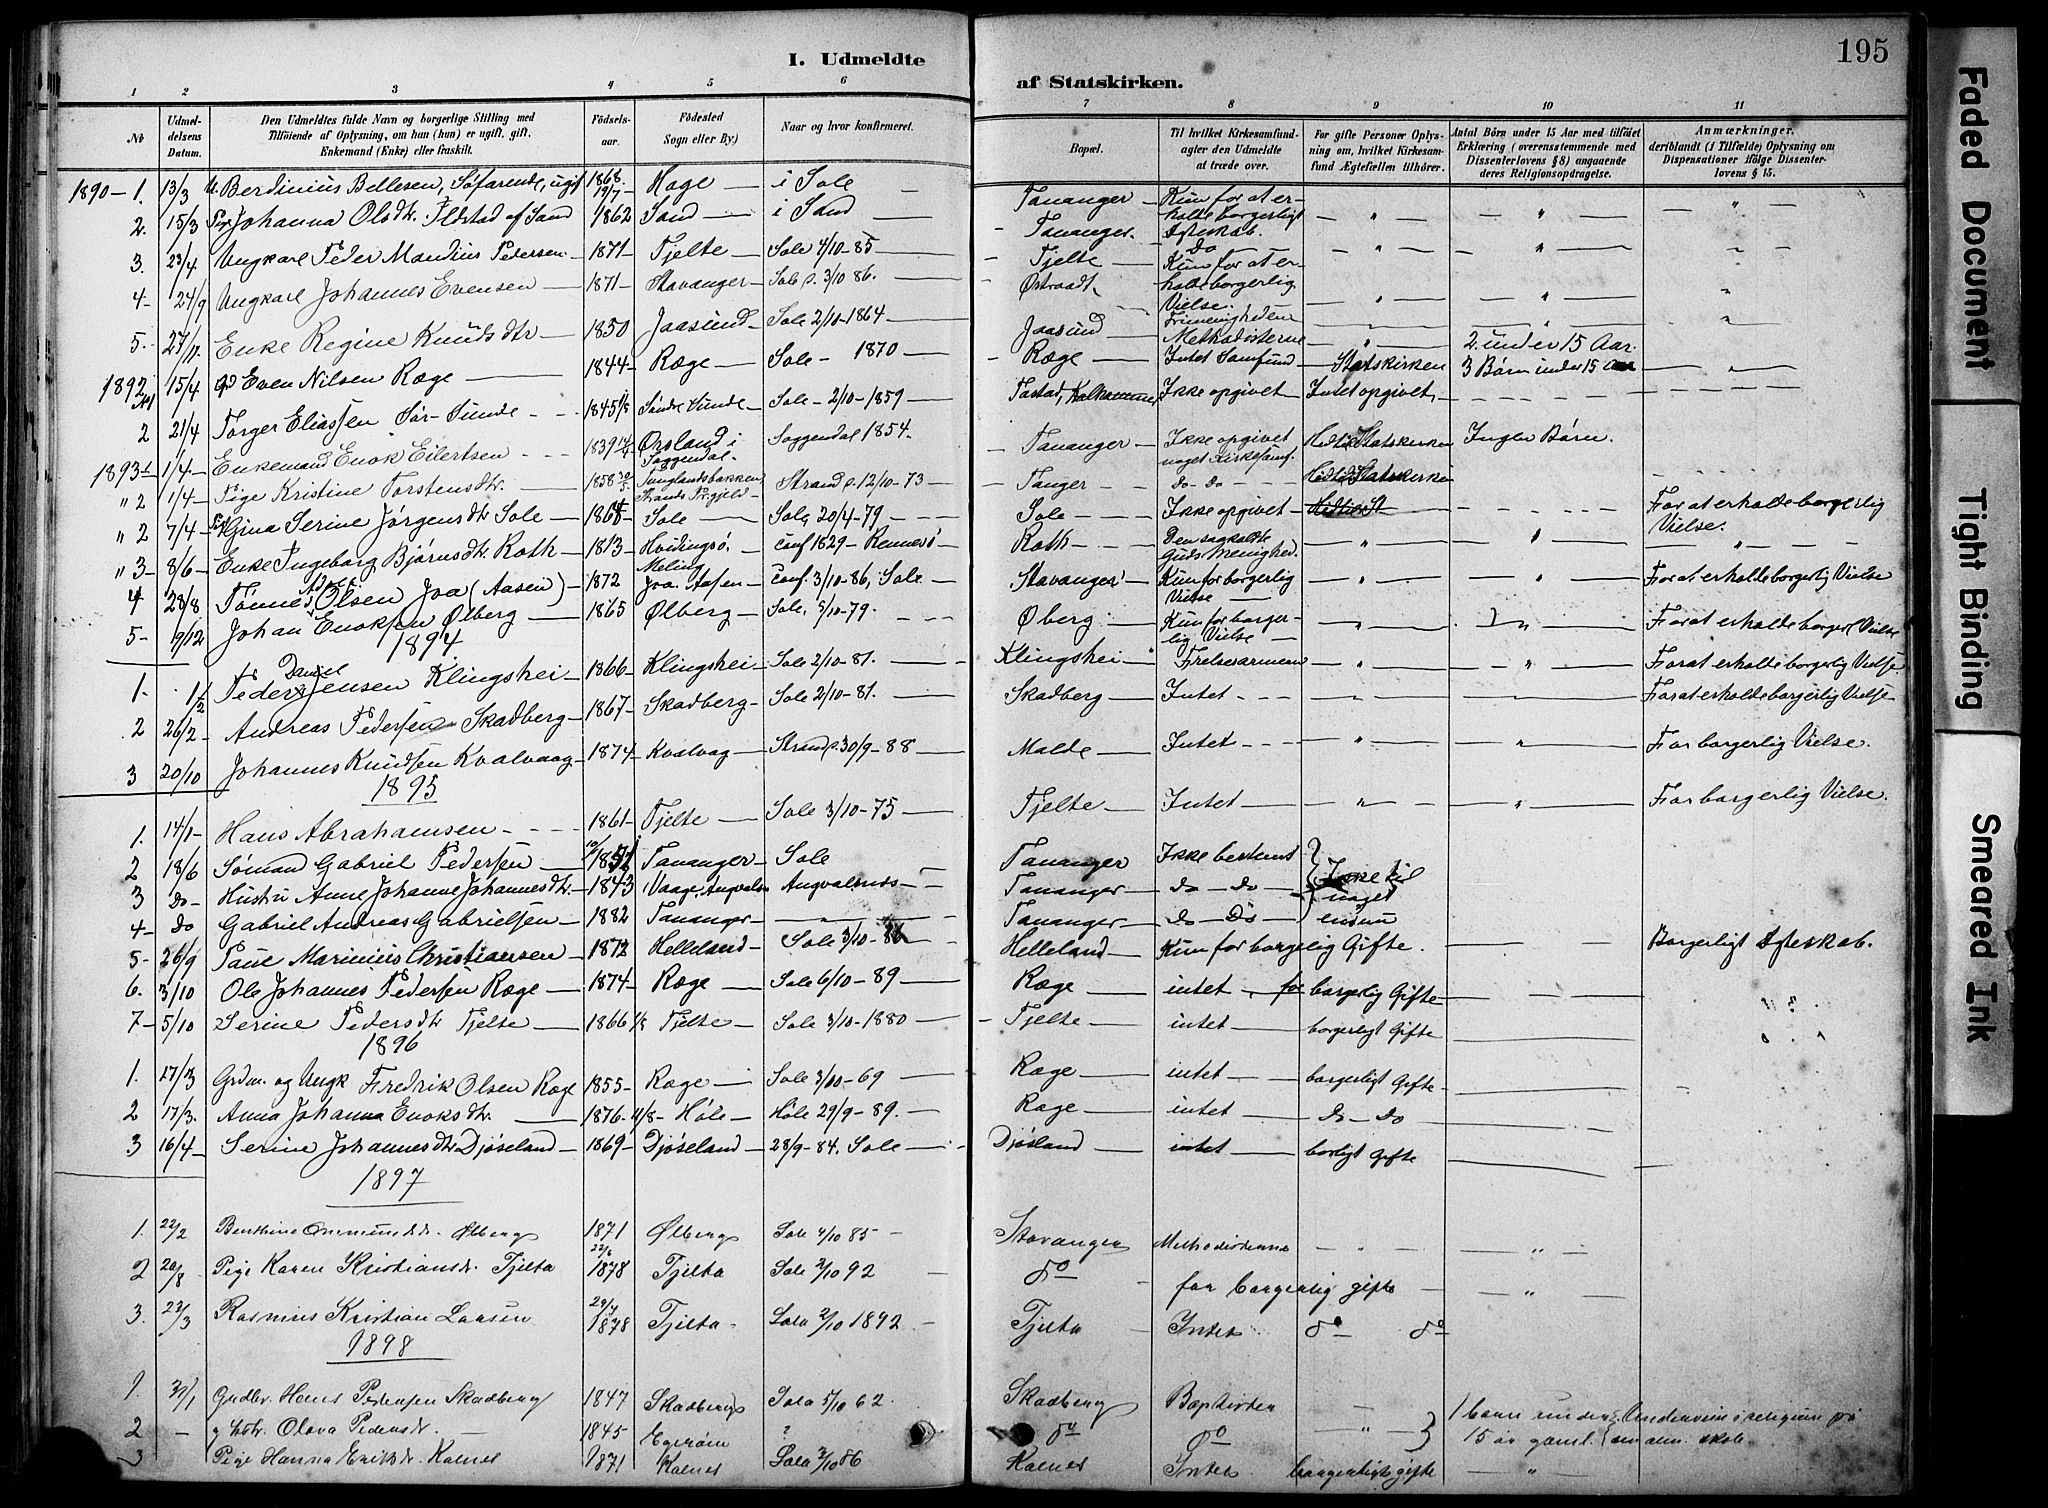 I. Udmeldte
af Statskirken.
195
1 2 3 4 5 6
7 8 9 10 11
No
Udmeldelsens Datum.
Den Udmeldtes fulde Navn og borgerlige Stilling med Tilføiende af Oplysning, om han (hun) er ugift, gift, Enkemand (Enke) eller fraskilt.
Fødselsaar.
Fødested Sogn eller By.)
Naar og hvor konfirmeret.
Bopæl.
Til hvilket Kirkesamfund agter den Udmeldte at træde over.
For gifte Personer Oplysning om, hvilket Kirkesamfund Ægtefællen tilhører.
Antal Børn under 15 Aar med tilføiet Erklæring (overensstemmende med Dissenterlovens § 8) angaaende deres Religionsopdragelse.
Anmærkninger, deriblandt (i Tilfælde) Oplysning om Dispensationer ifølge Dissenterlovens § 15.
1890 - 1. 13/3 Berdinius Bellesen, Søfarende, ugift 1868 19/7 Hage — i Sole — Tananger — Kun for at erholde borgerligt Egteskab.
2. 15/3 Johanna Olsdtr. af Sand 1862 Sand — i Sand — Tananger. Do
3. 23/4 Ungkarl Peder Mandius Pedersen 1871 — Tjelte — Sole 4/10-85 — Tjelte — Kun for at erholde borgerlig Vielse.
4 - 24/9 Ungkarl Johannes Evensen — 1871 — Stavanger — Sole 3/10 86. — Østraadt
5. 27/11. Enke Regine Knudsdtr — 1850 Jaasund — Sole 2/10-1864 — Jaasund — Frimenigheden Methodisterne 2 under 15 Aar.
1892 15/4 Even Nilsen Ræge — 1844 — Ræge — Sole - 1870 — Ræge — Intet Samfund — Statskirken 3 Børn under 15 Aar
2 21/4 Torger Eliassen Sør-Sunde - - 1845 Søndre Sunde — Sole - 2/10-1859 — Tastad, Ikke opgivet — Intet opgivet
1893 1 1/4 — Enkemand Enok Eilertsen - - - 1839 Ørsland i Soggendal — Soggendal 1854. — Tananger — Ikke opgivet noget Kirkesamf. Statskirken Ingen Børn.
" 2 1/4 — Pige Kristine Torstensdtr. — 1858 Tunglandsbakken Strands Prgjeld — Strand 12/10-73 — Tanger — do - do - Statskirken
" 2 7/4 — Gina Serine Jørgensdtr Sole — 1864 — Sole — Sole 20/4-79 — Sole — Ikke opgivet — For at erholde borgerlig Vielse.
" 3 — 8/6 — Enke Ingeborg Bjørnsdtr. Roth — 1813 — Hvidingsø. Conf 1829 — Rennesø — Roth — Den sagkaldte Guds Menighed.
4 28/8 Tønnes Olsen Joa (Aasen) — 1872 Joa. Conf. 3/10-86, Sole — Stavanger Kun for borgerlig Vielse — For at erholde borgerlig Vielse
5 — 9/12 Johan Enoksen Ølberg — 1865 Ølberg — Sole, 5/10-79. — Øberg — Kun for borgerlig Vielse — For at erholde borgerl Vielse
1894
1. 1/2 Peder Daniel Jensen Klingshei — 1866 — Klingshei — Sole 2/10-81. — Klingshei — Frelsesarmeen — For at erholde borgerlig Vielse
2 26/2 — Andreas Pedersen Skadberg — 1867 — Skadberg — Sole 2/10-81. — Skadberg — Intet - - - For at erholde borgerlig Vielse
3 20/10 Johannes Knudsen Kvalvaag — 1874 — Kvalvag — Strand 30/9-88 — Malde — Intet - - - For borgerlig Vielse.
1895
1. 14/1 — Hans Abrahamsen - - - 1861 — Tjelte — Sole 3/10-75 — Tjelte — Intet — For borgerlig Vielse.
2 18/6 Sømand Gabriel Pedersen — Tananger — Sole — Tananger Ikke bestemt Ikke til noget endnu
3 Do — Hustru Anne Johanne Johannesdtr. — 1843 Vaage, Angvalsnes — Tananger — do — do
4 — do Gabriel Andreas Gabrielsen — 1882 — Tananger — " — Tananger — do — Do
5 — 26/9 Paul Marinius Christiansen — 1872 Helleland — Sole 3/10-86 — Helleland — Kun for borgerlig Gifte. Borgerligt Egteskab.
6. 3/10 Ole Johannes Pedersen Ræge — 1874 — Ræge — Sole 6/10-89 — Ræge — intet for borgerlig Gifte
7 — 5/10 Serine Pedersdtr Tjelte — 1866 Tjelte — Sole 3/10-1880 — Tjelte — intet — borgerligt Gifte
1896
1. 17/3 Grdm. og Ungk Fredrik Olsen Ræge 1855 — Ræge — Sole 3/10-69 — Ræge — intet — borgerligt Gifte
2 17/3. Anna Johanna Enoksdtr. — 1876 — 4/8 — Høle — Høle 29/9-89. — Ræge — intet — Do — Do
3 16/4 — Serine Johannesdtr Djøseland — 1869 — Djøseland — 28/9-84. Sole — Djøsland — intet — borligt Gifte
1897
1. 22/2 Benthine Ommundsdtr. Ølberg 1871 Ølberg Sole 4/10 85 — Stavanger Methodisterne
2 20/8 Pige Karen Kristiansdr. Tjelta 22/6 1878 Tjelta Sole 2/10 92 — do — for borgerlig gifte
3. 22/3 Rasmus Kristian Larsen 1878 Tjelta — Sola 2/10 1892 — Tjelta — Intet do — do
1898
1. Grdbr. Hans Pedersen Skadberg 1847 Skadberg Sola 5/10 62. Skadberg Baptister 1 barn under 15 år gaml. Undervises i religion på
2 — og hstr. Olava Pedersdr. — 1845 — Egersund ? do do
3 Pige Hanna Eriksdr. Kolnes 1871 Kolnes Sola 3/10 86 Kolnes Intet borgerligt gifte — " —
Faded Document
Tight Binding
Smeared Ink